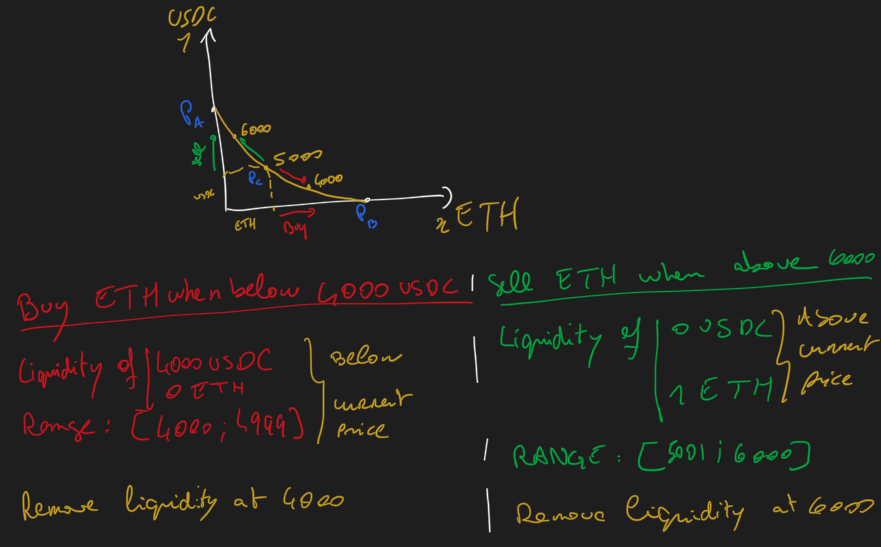 USDC
y
PA
6000
sell
5000
4000
Pc
USDC
ETH
Buy
PB
x ETH
Buy ETH when below 4000 USDC
Liquidity of 4000 USDC
0 ETH
Range: [4000; 4999]
Below
current
price
Remove liquidity at 4000
Sell ETH when above 6000
Liquidity of 0 USDC
1 ETH
Above
current
price
RANGE: [5001; 6000]
Remove liquidity at 6000